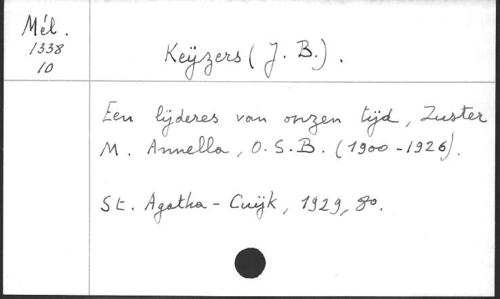 Mél.
1338
10
Keÿzers (J. B.).
Een lÿderes van onzen tÿd, Zuster
M. Annella, O.S.B. (1900-1926).
St. Agatha - Cuÿk, 1929, 8o.